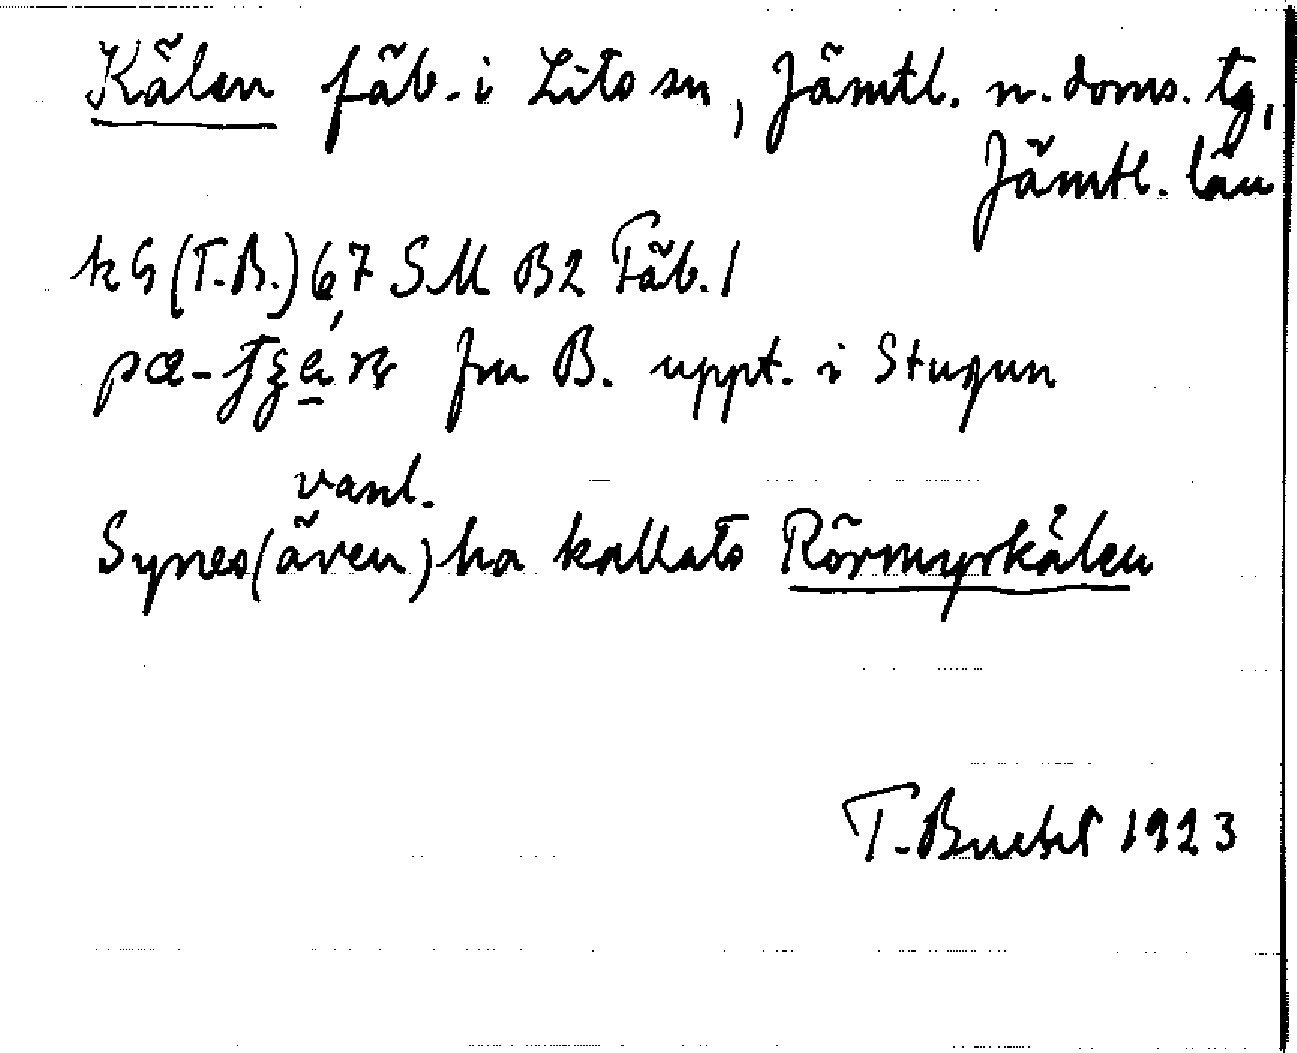 Kålen fäb. i Lits sn, Jämtl. n. doms. tg,
Jämtl. län
kG (T.B.) 67 SM B2 Fäb. 1
fru B. uppt. i Stugun
vanl.
Synes (även) ha kallats Rörmyrkålen
T. Bucht 1923